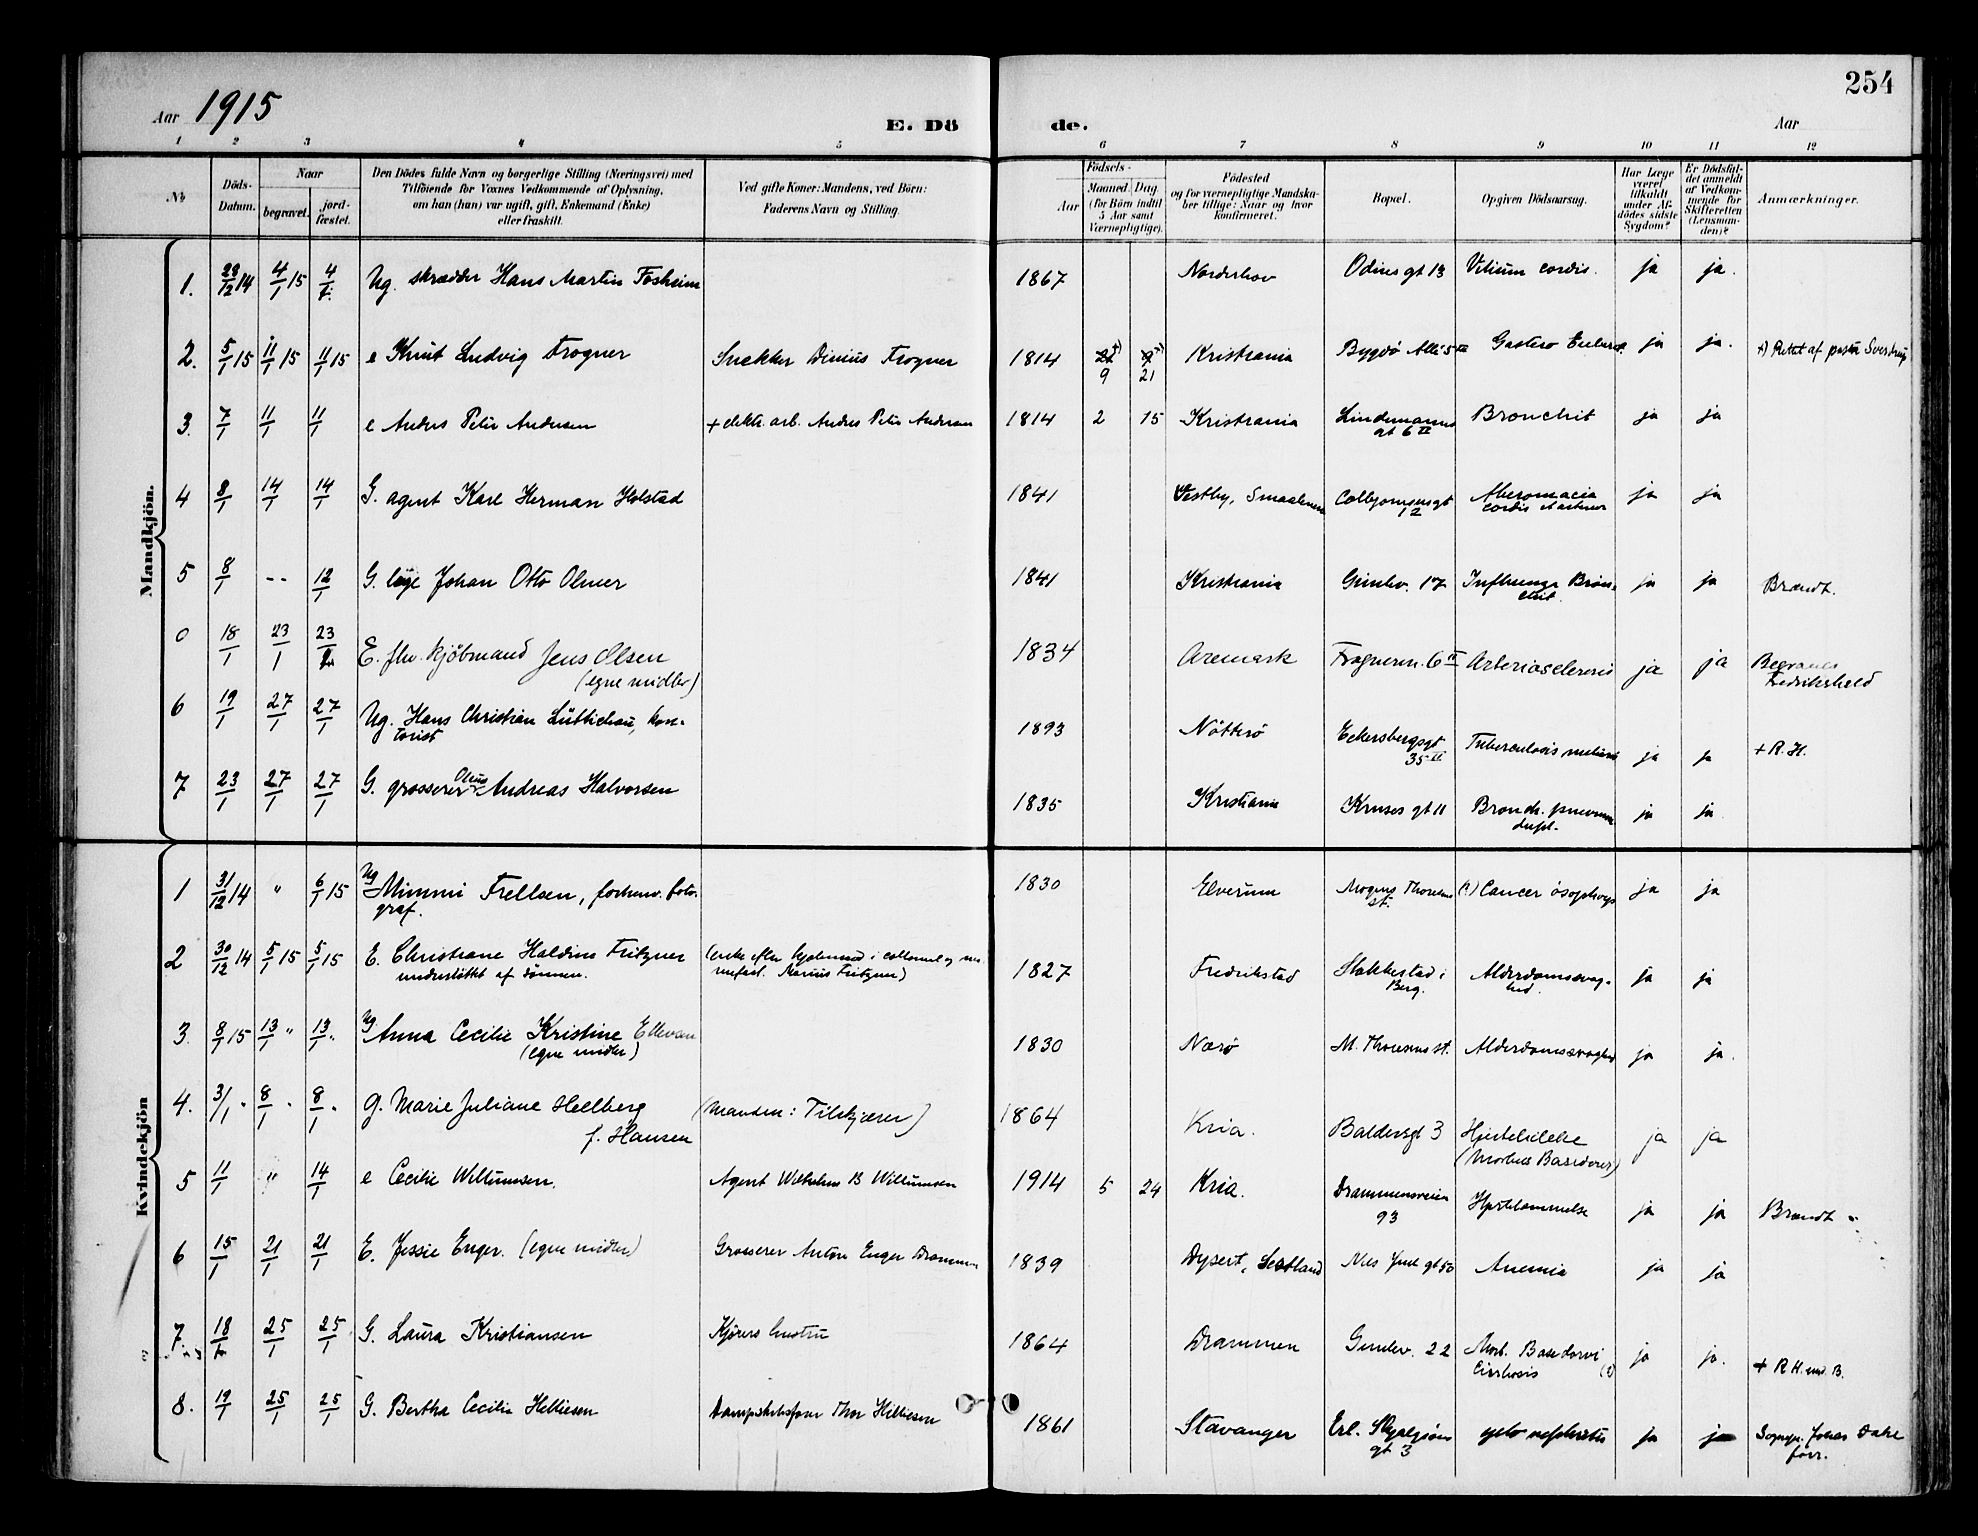 254
Aar 1915
E. Dö de.
Aar
1 2 3 4 5 6 7 8 9 10 11 12
No
Döds-Datum.
Naar
begravet.
jord-fæstet.
Den Dödes fulde Navn og borgerlige Stilling (Næringsvei) med
Tilföiende for Voxnes Vedkommende af Oplysning,
om han (hun) var ugift, gift, Enkemand (Enke)
eller fraskilt.
Ved gifte Koner: Mandens, ved Börn:
Faderens Navn og Stilling.
Födsels-
Aar
Maaned. Dag.
(for Börn indtil
5 Aar samt
Værnepligtige).
Födested
og for værnepligtige Mandska-
ber tillige: Naar og hvor
konfirmeret.
Bopæl.
Opgiven Dödsaarsag.
Har Læge
været
tilkaldt
under Af-
dödes sidste
Sygdom?
Er Dödsfal-
det anmeldt
af Vedkom-
mende for
Skifteretten
(Lensman-
den)?
Anmærkninger.
Mandkjön.
1. 23/12 14 4/1 15 4/1 Ug. skrædder Hans Martin Fosheim 1867 Norderhov Odins gt 13 Vitium cordis. ja ja.
2. 5/1 15 11/1 15 11/1 15 e Knut Ludvig Frogner Snekker Dinius Frogner 1814 9 21 Kristiania Bygdö Allé 5 III Gastero ja ja. x) Rettet af pastor Sverdrup
3. 7/1 11/1 11/1 e Anders Peter Andersen + elektr. arb. Andres Peter Andersen 1814 2 15 Kristiania Lindemanns gt 6 II Bronchit ja ja
4 8/1 14/1 14/1 G. agent Karl Herman Holstad 1841 Vestby, Smaalenene Colbjørnsensgt 12 cordis ja ja
5 8/1 -- 12/1 G. læge Johan Otto Olmer 1841 Kristiania Gimlev. 17 Influenza Bronchit. ja ja Brændt.
0 18/1 23/1 23/1 E. fhv. kjöbmand Jens Olsen
(egne midler) 1834 Aremark Frognerv. 6 II Arteriosclerosis ja ja Begraves Fredrikshald
6 19/1 27/1 27/1 Ug. Hans Christian Lüttichau, kon-
torist 1893 Nötterö Eckersbergsgt 35 II Tuberculosis miliaris ja ja + R. H.
7 23/1 27/1 27/1 G. grosserer Oluus Andreas Halvorsen 1835 Kristiania Kruses gt 11 Bronch. pneumon dupl. ja ja.
Kvindekjön
1 31/12 14 " 6/1 15 Ug Mimmi Frellsen, forhenv. foto-
graf. 1830 Elverum Mogens Thorsens st. (?) Cancer ösophagi ja ja
2 30/12 14 5/1 15 5/1 15 E. Christiane Haldine Fritzner
understöttet af sönnen. (enke efter Marius Fritzner) 1827 Fredrikstad Stokkestad i Berg. Alderdomssvag-
hed. ja ja
3. 8/1 15 13/1 " 13/1 " Ug Anna Cecilie Kristine Ellevan
(egne midler) 1830 Nærö M. Thorsens st. Alderdomssvaghed ja ja.
4. 3/1 " 8/1 " 8/1 " g. Marie Juliane Hellberg
f. Hansen (Manden: Tilskjærer) 1864 Kria. Baldersgt 3 Hjertelidelse
(Morbus Basedowii) ja ja
5 11/1 " 14/1 e Cecilie Willumsen. Agent Wilhelm B Willumsen 1914 5 24 Kria. Drammensveien 93 Hjertelammelse ja ja Brændt
6 15/1 21/1 21/1 E. Jessie Enger. (egne midler) Grosserer Anton Enger Drammen 1839 Dysert, Scotland Niels Juul gt 50 Anemia ja ja
7. 18/1 25/1 25/1 G. Laura Kristiansen Kjörers hustru 1864 Drammen Gimlev. 22 Morb. Basedowi
Cirrhosis (?) ja ja. + R.H. B.
8. 19/1 25/1 25/1 G. Bertha Cecilie Helliesen Dampskibsförer Thor Helliesen 1861 Stavanger Erl. Skjalgsöns gt 3 nephritis ja ja Sogngr. Johs Dahl forr.